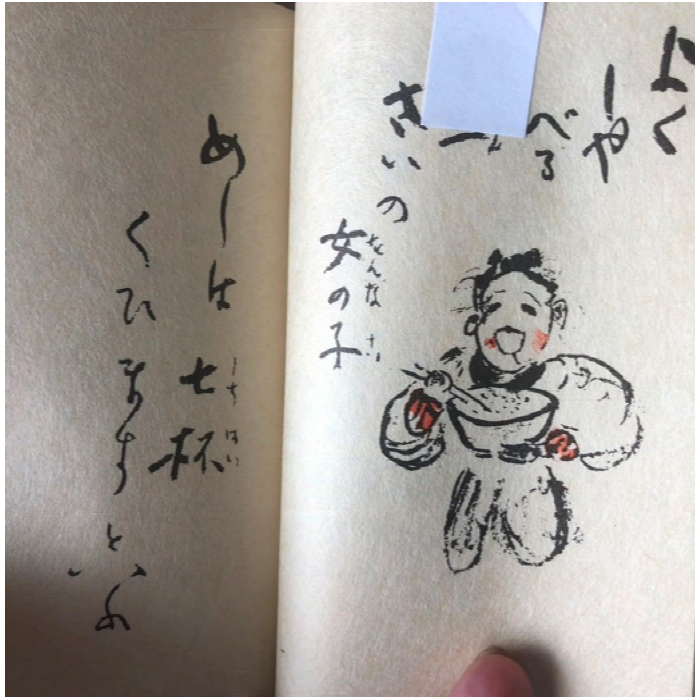 よく
しや
べる
さいの
女の子
をんな
めしは七杯
しちはい
くひますといふ